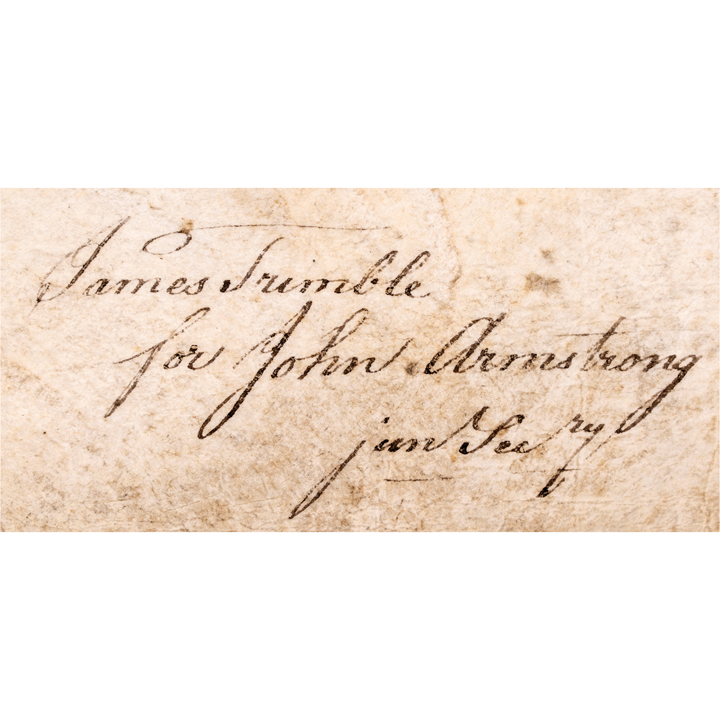 James Trimble
for John Armstrong
junr Secry